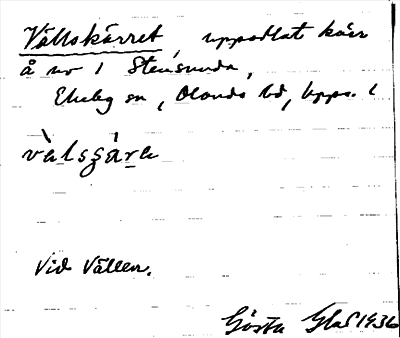 Vällskärret, uppodlat kärr
å nv 1 Stensunda,
Ekeby sn, Olands hd, Upps. l
vàlsgáre
Vid Vällen.
Gösta 1936